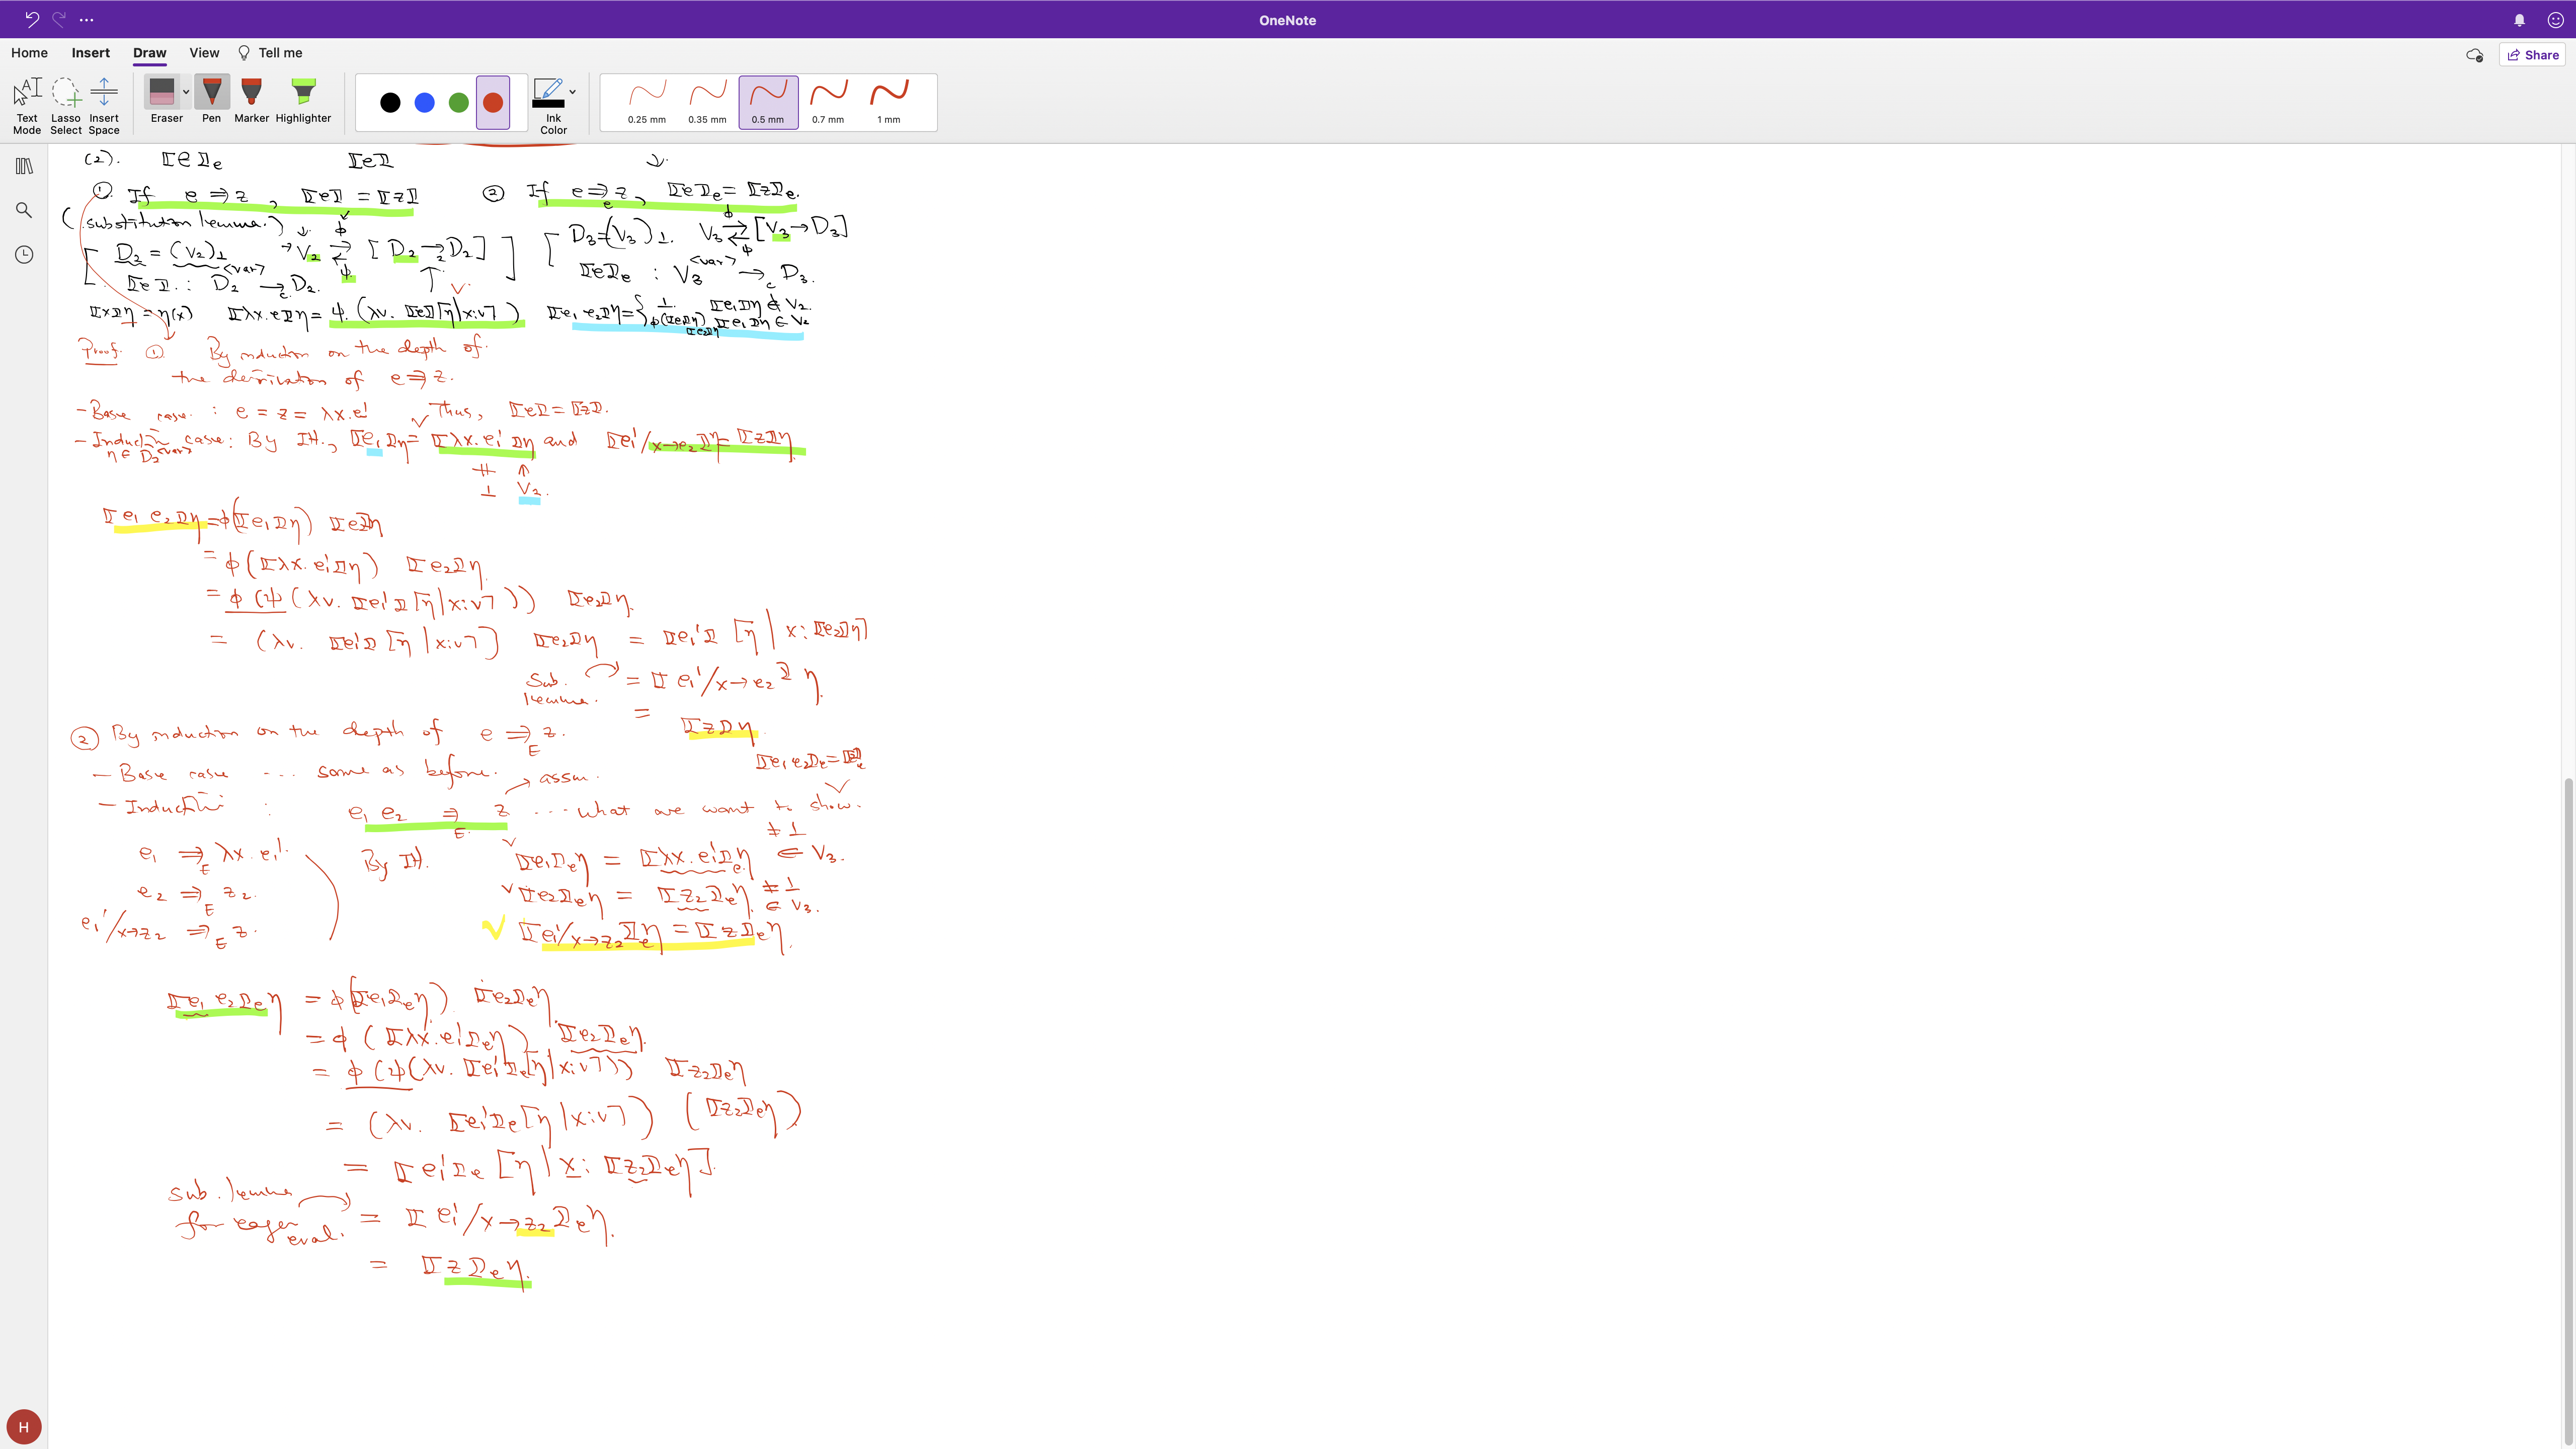 OneNote
Home Insert Draw View Tell me
Share
Text Mode
Lasso Select
Insert Space
Eraser
Pen
Marker
Highlighter
Ink Color
0.25 mm
0.35 mm
0.5 mm
0.7 mm
1 mm
(2). ⟦e⟧e ⟦e⟧ ↓.
① If e ⇒ z, ⟦e⟧ = ⟦z⟧ ② If e ⇒e z, ⟦e⟧e = ⟦z⟧e.
(substitution lemma.)
[ D2 = (V2)⊥ → V2 ⇄ [D2 → D2] ] [ D3 = (V3)⊥. V3 ⇄ [V3 → D3]
⟦e⟧ : D2^<var> →c D2. ⟦e⟧e : V3^<var> →c D3.
⟦x⟧η = η(x) ⟦λx.e⟧η = ψ.(λv. ⟦e⟧[η|x:v]) ⟦e1 e2⟧η = { ⊥. ⟦e1⟧η ∉ V2.
φ(⟦e1⟧η) ⟦e2⟧η ⟦e1⟧η ∈ V2
Proof. ① By induction on the depth of
the derivation of e ⇒ z.
- Base case : e = z = λx.e' Thus, ⟦e⟧ = ⟦z⟧.
- Induction case: By IH, ⟦e1⟧η = ⟦λx.e1'⟧η and ⟦e1'/x→e2⟧η = ⟦z⟧η.
η ∈ D2^<var>
≠ ↑
⊥ V2.
⟦e1 e2⟧η = φ(⟦e1⟧η) ⟦e2⟧η
= φ(⟦λx.e1'⟧η) ⟦e2⟧η.
= φ(ψ(λv. ⟦e1'⟧[η|x:v])) ⟦e2⟧η.
= (λv. ⟦e1'⟧[η|x:v]) ⟦e2⟧η = ⟦e1'⟧[η|x:⟦e2⟧η]
Sub. lemma. = ⟦e1'/x→e2⟧η.
= ⟦z⟧η.
② By induction on the depth of e ⇒E z.
- Base case ... same as before.
→ assm.
- Induction : e1 e2 ⇒E z ... what we want to show.
e1 ⇒E λx.e1'. By IH. ⟦e1⟧eη = ⟦λx.e1'⟧eη ≠ ⊥ ∈ V3.
e2 ⇒E z2. ⟦e2⟧eη = ⟦z2⟧eη. ≠ ⊥ ∈ V3.
e1'/x→z2 ⇒E z. ⟦e1'/x→z2⟧eη = ⟦z⟧eη.
⟦e1 e2⟧eη = φ(⟦e1⟧eη) ⟦e2⟧eη.
= φ(⟦λx.e1'⟧eη) ⟦e2⟧eη.
= φ(ψ(λv. ⟦e1'⟧e[η|x:v])) ⟦z2⟧eη
= (λv. ⟦e1'⟧e[η|x:v]) (⟦z2⟧eη)
= ⟦e1'⟧e[η|x:⟦z2⟧eη].
sub. lemma for eager eval. = ⟦e1'/x→z2⟧eη.
= ⟦z⟧eη.
H